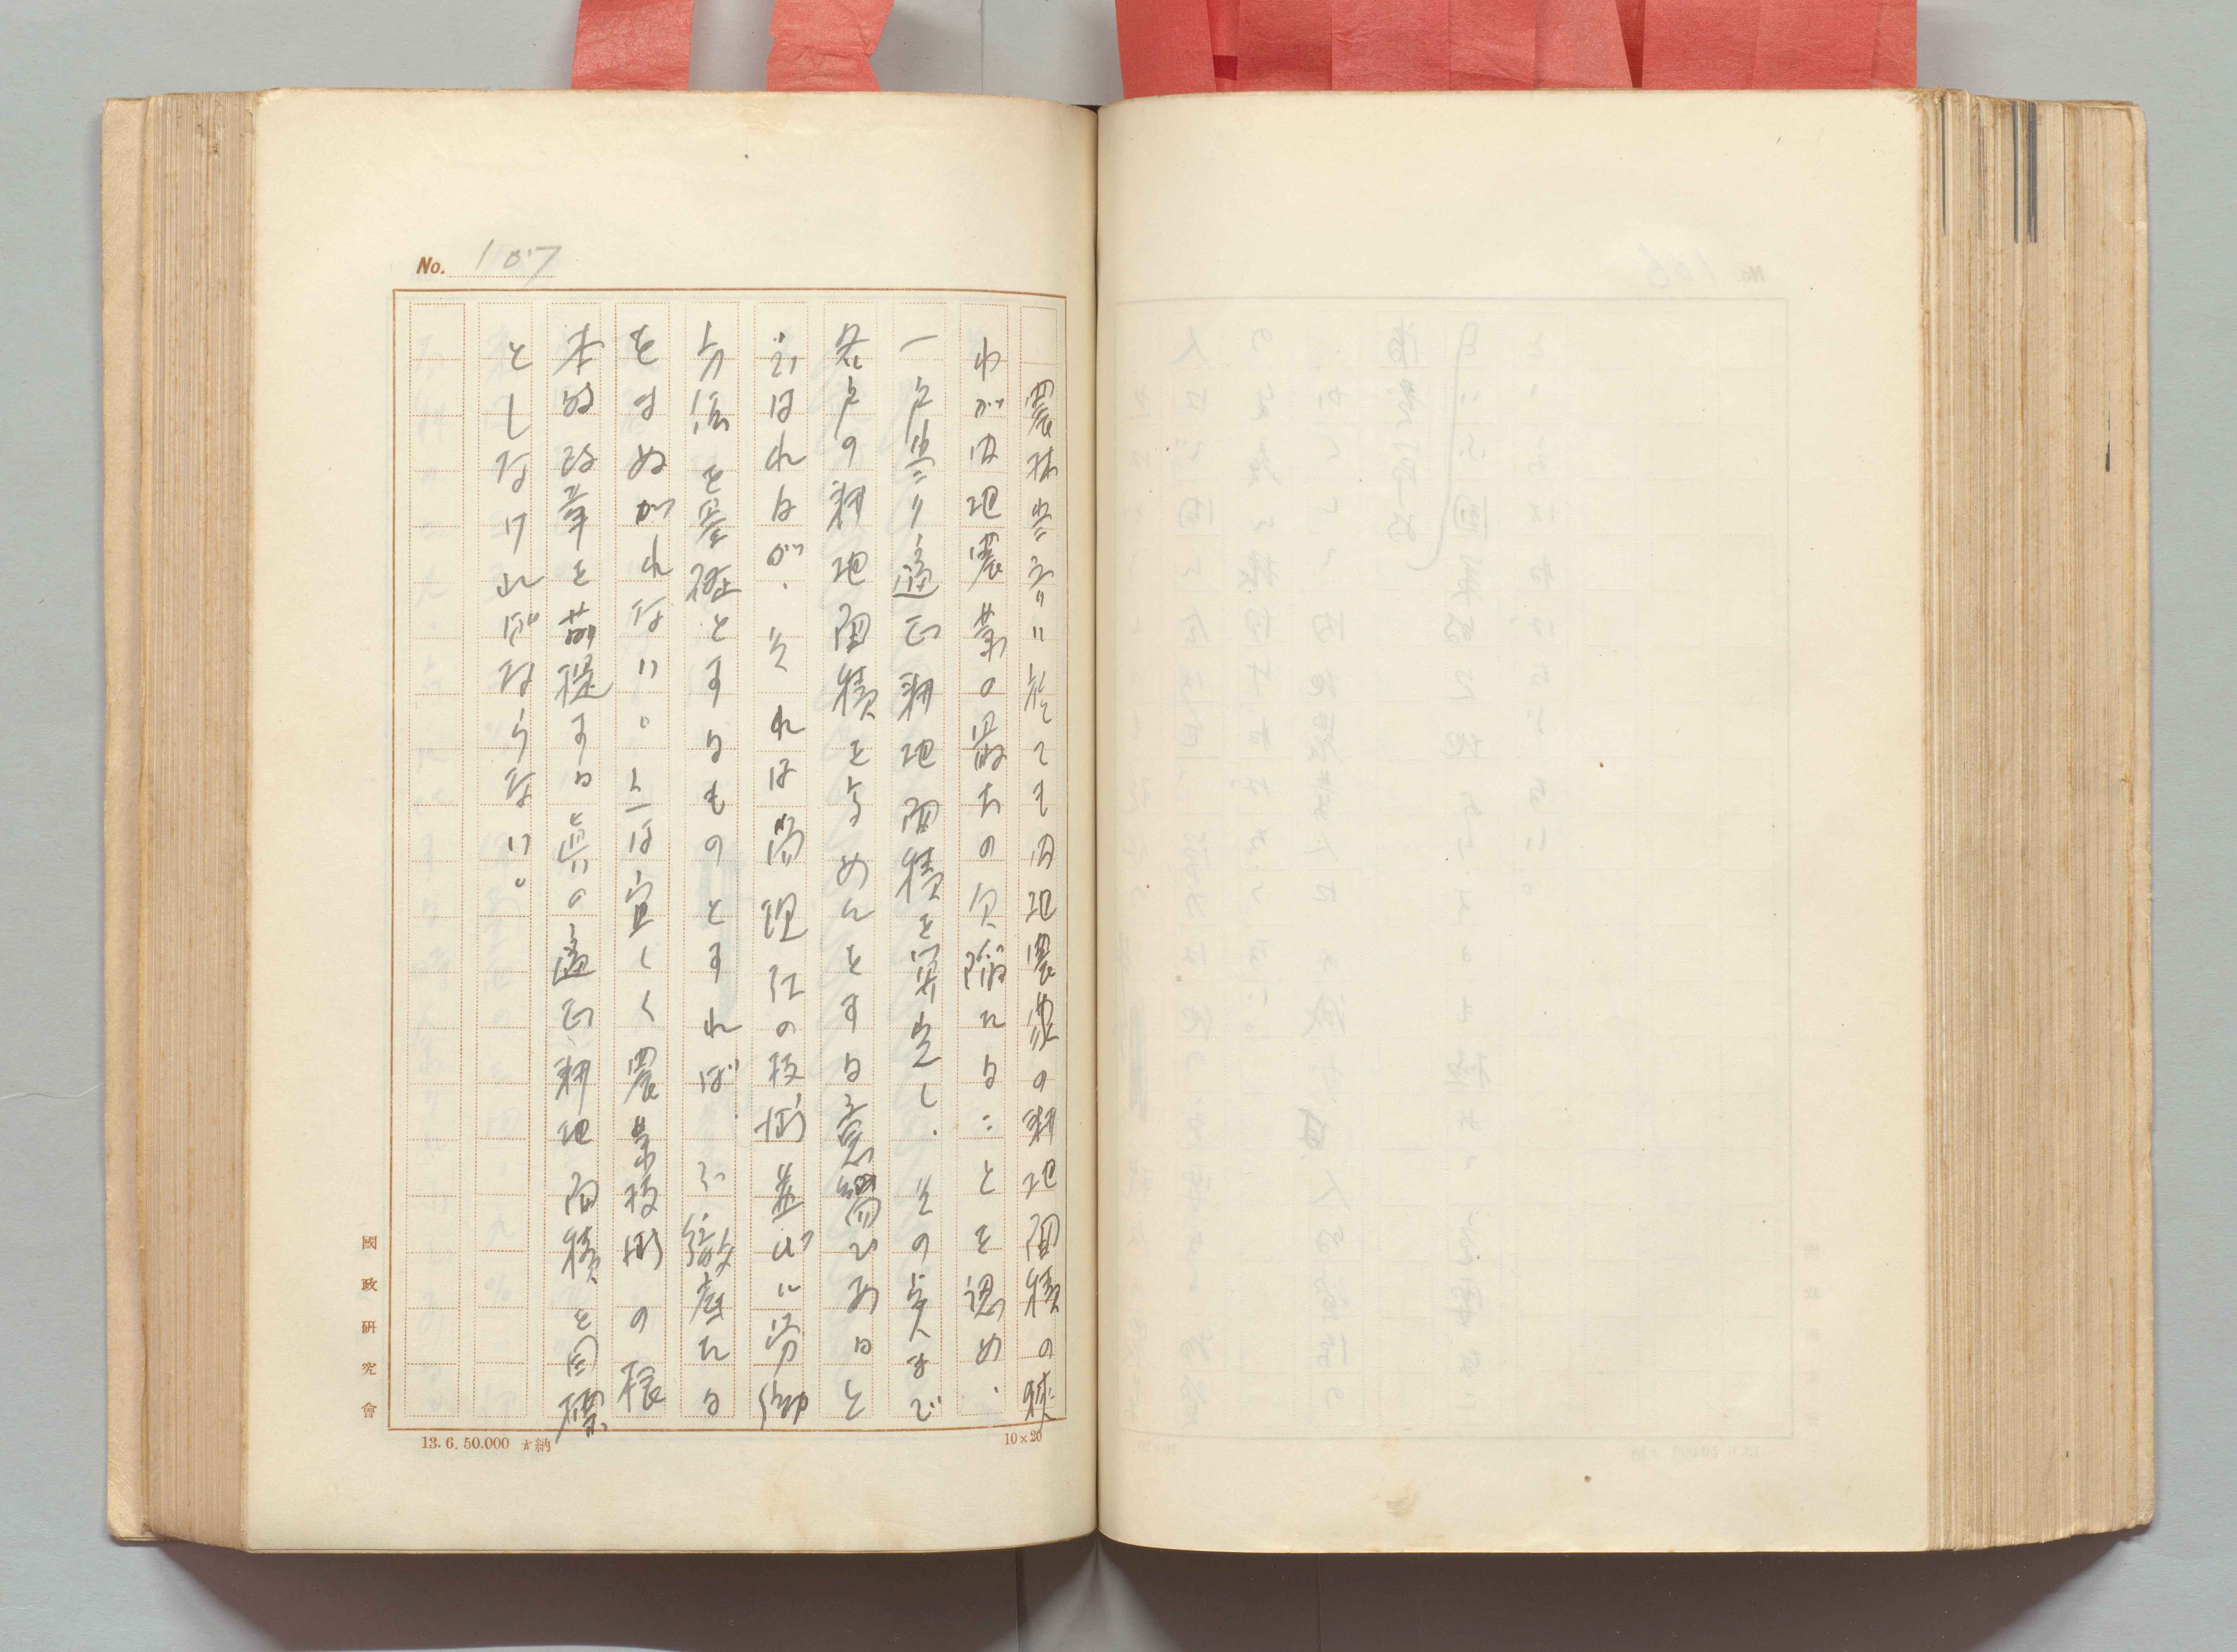 No. 107
農林当局に於ても内地農業の耕地面積の狭
わが内地農業の最大の欠陥たることを認め、
一戸当り適正耕地面積を算定し、その点まで
各戸の耕地面積を高めんとする意嚮であると
云はれるが、それは満理江の技術並びに労働
方法を基礎とするものとすれば、不徹底たる
をまぬがれない。之は宜しく農業技術の根
本的改革を前提する真の適正耕地面積を目標
としなければならない。
國政研究會
13.6.50.000 納
10×20